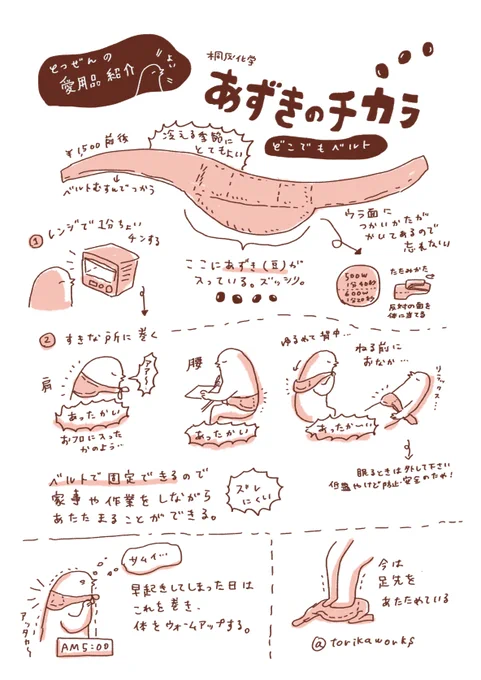 とつぜんの
愛用品紹介
桐灰化学
あずきのチカラ
どこでもベルト
¥1,500前後
↓
ベルトむすんでつかう
冷える季節に
とてもよい
ウラ面に
つかいかたが
かいてあるので
忘れない
① レンジで1分ちょい
チンする
ここにあずき(豆)が
入っている。ズッシリ。
500W
600W
たたみかた
反対の面を
体に当てる
② すきな所に巻く
肩
アァ〜
あったかい
おフロに入った
かのよう…
腰
あったかい
ゆるめて背中…
ねる前に
おなか…
リラックス…
あったか〜い
眠るときは外して下さい
低温やけど防止・安全のため!
ベルトで固定できるので
家事や作業をしながら
あたたまることができる。
ズレ
にくい
サムイ…
アッタカイ
AM5:00
早起きしてしまった日は
これを巻き、
体をウォームアップする。
今は
足先を
あたためている
@torikaworks